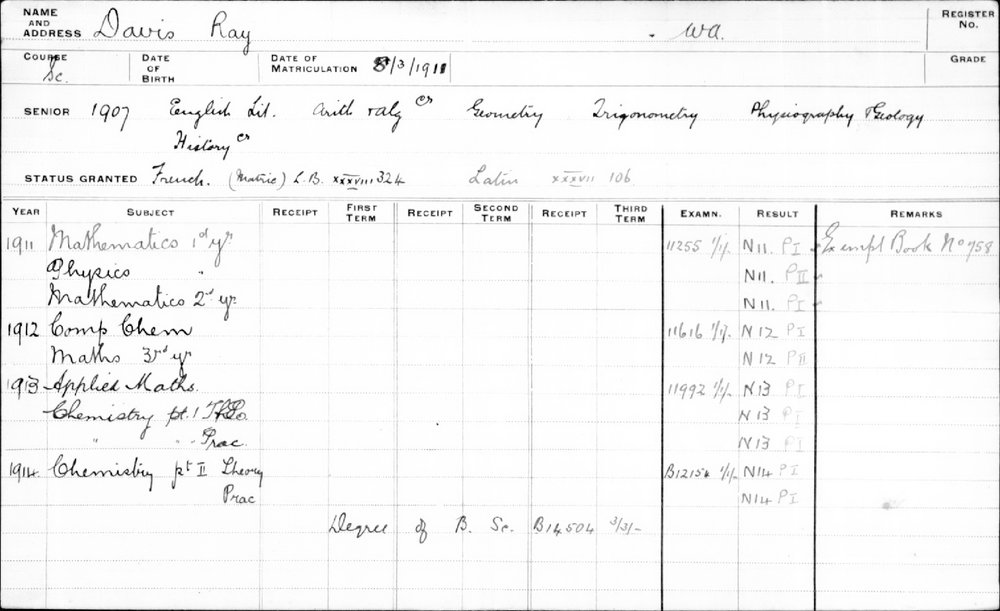 NAME AND ADDRESS Davis Ray . WA. REGISTER No.
COURSE Sc. DATE OF BIRTH DATE OF MATRICULATION 8/3/1911 GRADE
SENIOR 1907 English Lit. Arith & alg cr Geometry Trigonometry Physiography & Geology
History cr
STATUS GRANTED French. (Matric) L.B. xxxviii 324 Latin xxxvii 106
YEAR SUBJECT RECEIPT FIRST TERM RECEIPT SECOND TERM RECEIPT THIRD TERM EXAMN. RESULT REMARKS
1911 Mathematics 1st yr 11255 1/1/- N11. PI Exempt Book No 758
Physics " N11. PII
Mathematics 2nd yr N11. PI
1912 Comp Chem 11616 1/1/- N12 PI
Maths 3rd yr N12 PII
1913 Applied Maths. 11992 1/1/- N13 PI
Chemistry pt. 1 Theo. N13 PI
" " " Prac. N13 PI
1914. Chemistry pt II Theory B12154 1/1/- N14 PI
Prac N14 PI
Degree of B. Sc. B14504 3/3/-